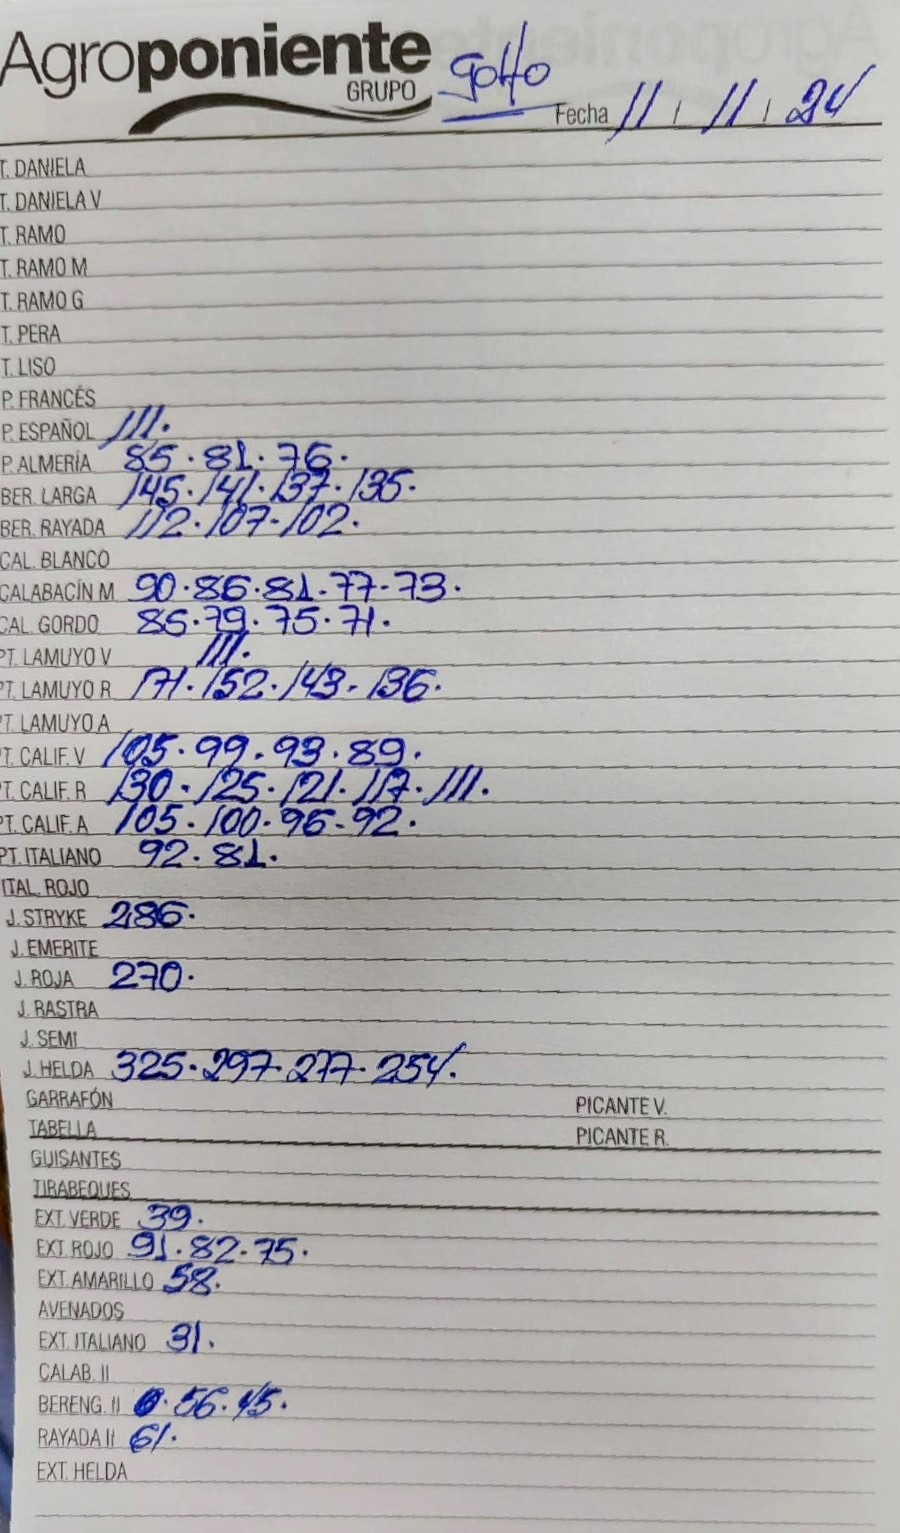 Agroponiente
GRUPO
golfo
Fecha 11 / 11 / 24
T. DANIELA
T. DANIELA V
T. RAMO
T. RAMO M
T. RAMO G
T. PERA
T. LISO
P. FRANCÉS
P. ESPAÑOL 111.
P. ALMERÍA 85 · 81 · 76 ·
BER. LARGA 145 · 141 · 137 · 135 ·
BER. RAYADA 112 · 107 - 102 ·
CAL. BLANCO
CALABACÍN M 90 · 86 · 81 - 77 - 73 ·
CAL. GORDO 86 · 79 · 75 · 71 ·
PT. LAMUYO V 111.
PT. LAMUYO R 171 · 152 · 143 - 136 ·
PT. LAMUYO A
PT. CALIF. V 105 · 99 · 93 · 89 ·
PT. CALIF. R 130 · 125 · 121 · 117 · 111 ·
PT. CALIF. A 105 · 100 · 96 - 92 ·
PT. ITALIANO 92 · 81 ·
ITAL. ROJO
J. STRYKE 286 ·
J. EMERITE
J. ROJA 270 ·
J. RASTRA
J. SEMI
J. HELDA 325 · 297 · 277 · 254 ·
GARRAFÓN PICANTE V.
TABELLA PICANTE R.
GUISANTES
TIRABEQUES
EXT. VERDE 39 ·
EXT. ROJO 91 · 82 - 75 ·
EXT. AMARILLO 58 ·
AVENADOS
EXT. ITALIANO 31 ·
CALAB. II
BERENG. II 56 · 45 ·
RAYADA II 61 ·
EXT. HELDA